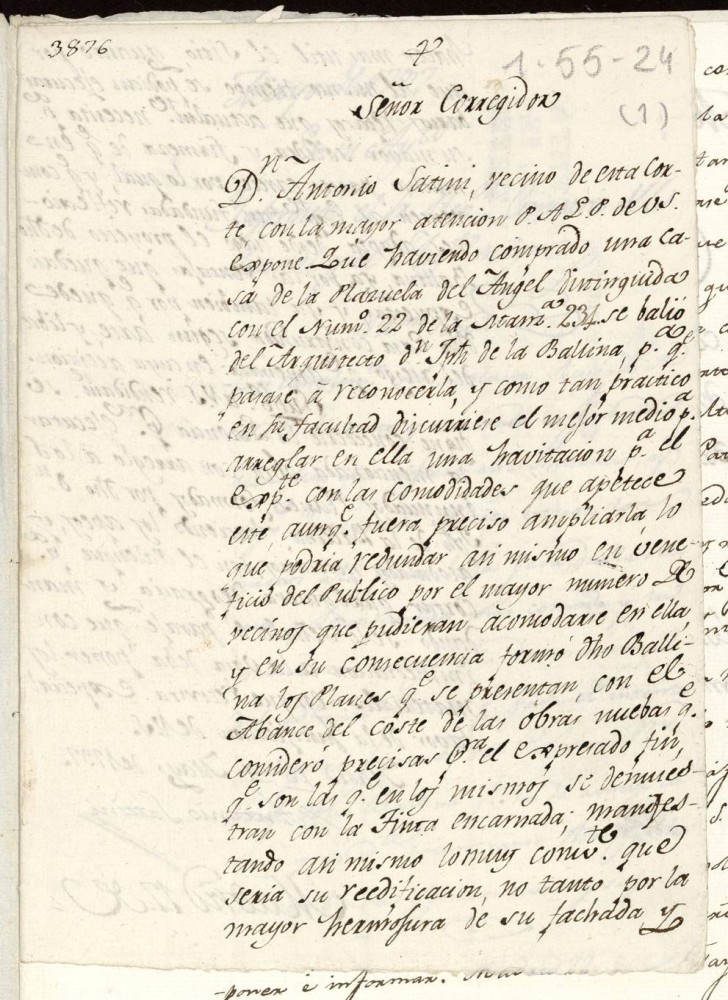 3876
1-55-24
(1)
Señor Corregidor
Dn. Antonio Satini, vecino de esta Cor-
te con la mayor atencion P. A L P. de VS.
expone. Que haviendo comprado una ca-
sa de la Plazuela del Angel distinguida
con el Numo. 22 de la Manza. 234. se balió
del Arquitecto dn. Jph de la Ballina, pa. qe.
pasase à reconocerla, y como tan practico
en su facultad discurriese el mejor medio pa.
arreglar en ella una havitacion pa. el
Expte. con las Comodidades que apetece
este, aunqe. fuera preciso ampliarla, lo
que podria redundar asi mismo en vene-
ficio del Publico por el mayor numero de
vecinos que pudieran acomodarse en ella,
y en su consecuencia formó dho Balli-
na los Planes qe. se presentan, con el
Abance del coste de las obras nuebas qe.
consideró precisas pra. el expresado fin,
qe. son las qe. en los mismos se demues-
tran con la Tinta encarnada; manifes-
tando asi mismo lo muy convte. que
seria su reedificacion, no tanto por la
mayor hermosura de su fachada, y
poner è informar.